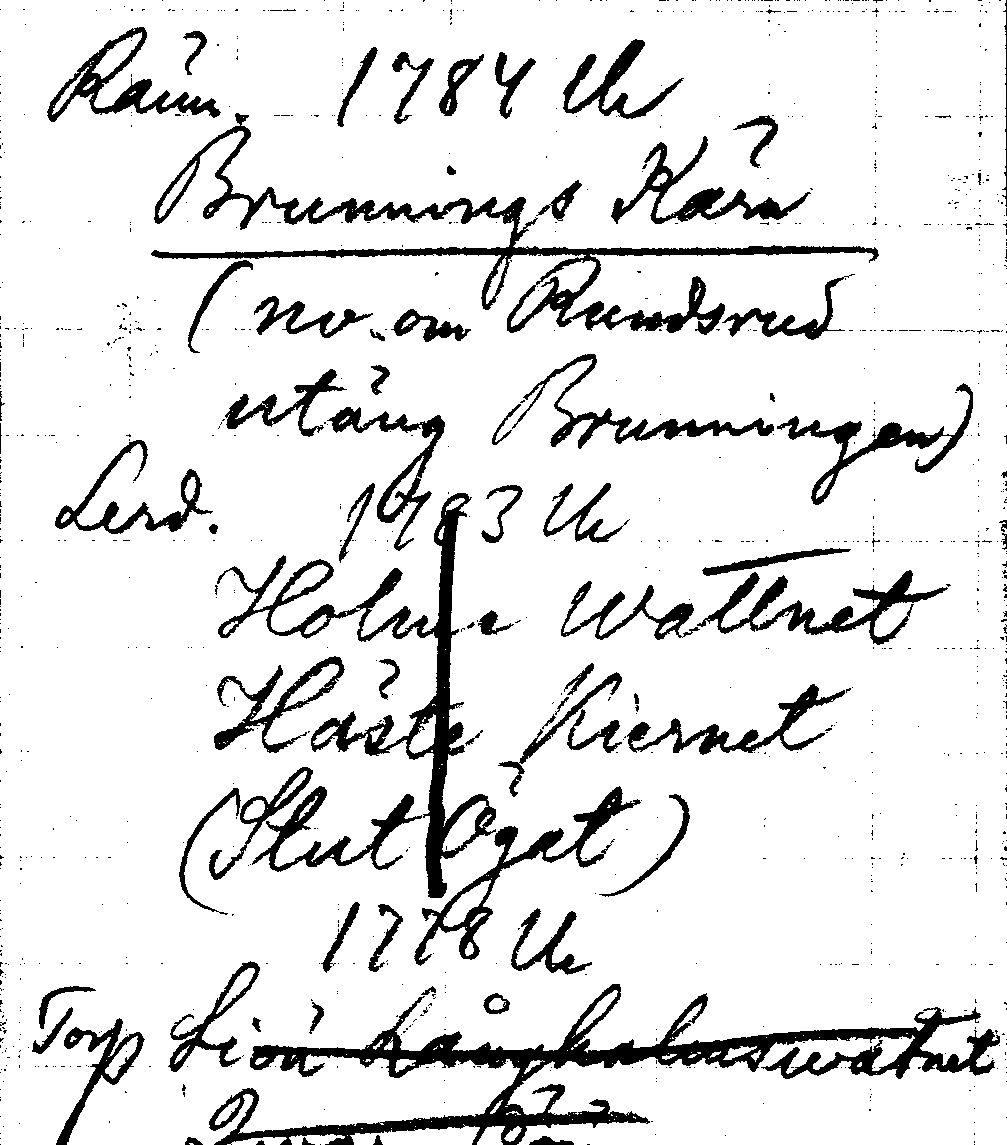 Räun. 1784 Uk
Brunnings Kärn
(no. om Rundsrud
utäng Brunningen)
Lerd. 1783 Uk
Holme Wattnet
Häste Kiernet
(Stut Ögat)
1778 Uk
Torp Siön Långholmswatnet